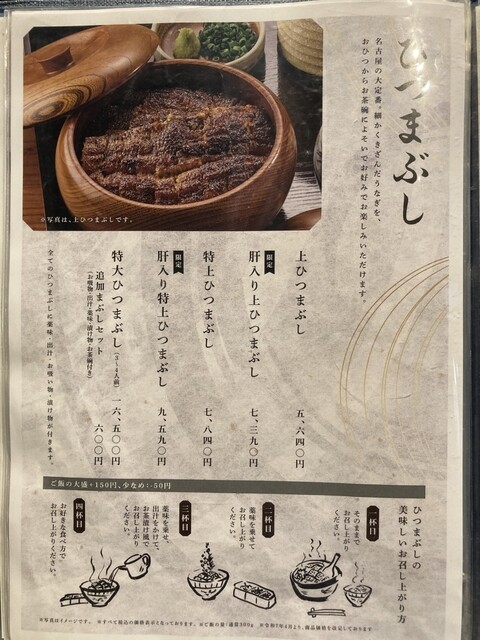 ひつまぶし
名古屋の大定番。細かくきざんだうなぎを、
おひつからお茶碗によそいでお好みでお楽しみいただけます。
※写真は、上ひつまぶしです。
上ひつまぶし 五、六四〇円
限定
肝入り上ひつまぶし 七、三九〇円
特上ひつまぶし 七、八四〇円
限定
肝入り特上ひつまぶし 九、五九〇円
特大ひつまぶし(3〜4人前) 一六、五〇〇円
追加まぶしセット 六〇〇円
(お吸物・出汁・薬味・漬け物・お茶碗付き)
全てのひつまぶしに薬味・出汁・お吸い物・漬け物が付きます。
ご飯の大盛+150円、少なめ:-50円
ひつまぶしの
美味しいお召し上がり方
一杯目
そのままで
お召し上がり
ください。
二杯目
薬味を乗せて
お召し上がり
ください。
三杯目
薬味を乗せ、
出汁をかけて、
お茶漬け風で
お召し上がり
ください。
四杯目
お好きな食べ方で
お召し上がりください。
※写真はイメージです。 ※すべて税込の価格表示となっております。 ※ご飯の量:通常300g ※令和7年4月より、商品価格を改定しております